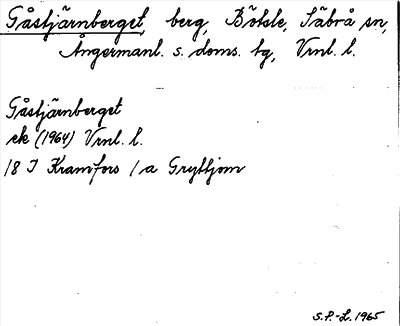 Gåstjärnberget, berg, Bölsle, Säbrå sn,
Ångermanl. s. doms. tg, Vrnl. l.
Gåstjärnberget
ek (1964) Vrnl. l.
18 I Kramfors /a Gryttjom
S.P.-L. 1965